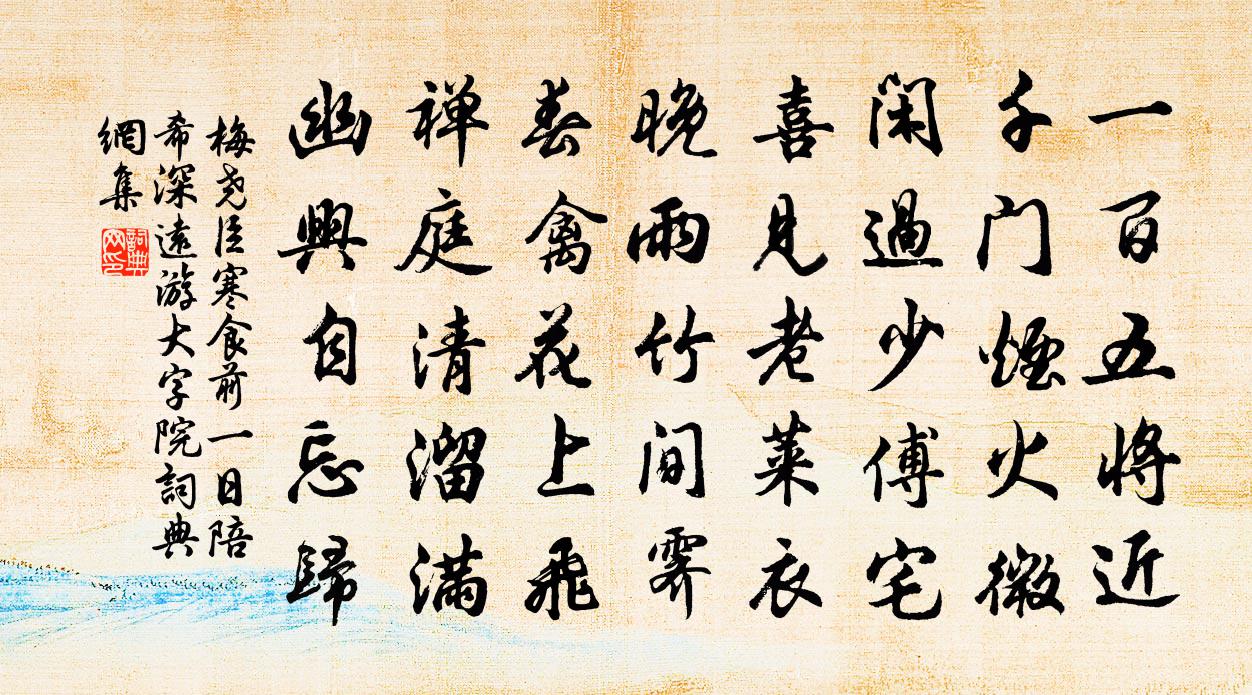 一百五將近
千门煙火微
闲過少傅宅
喜見老莱衣
晚雨竹间霁
春禽花上飛
禅庭清溜满
幽興自忘歸
梅尧臣寒食前一日陪
希深遠游大字院詞典
網集
詞典
网印